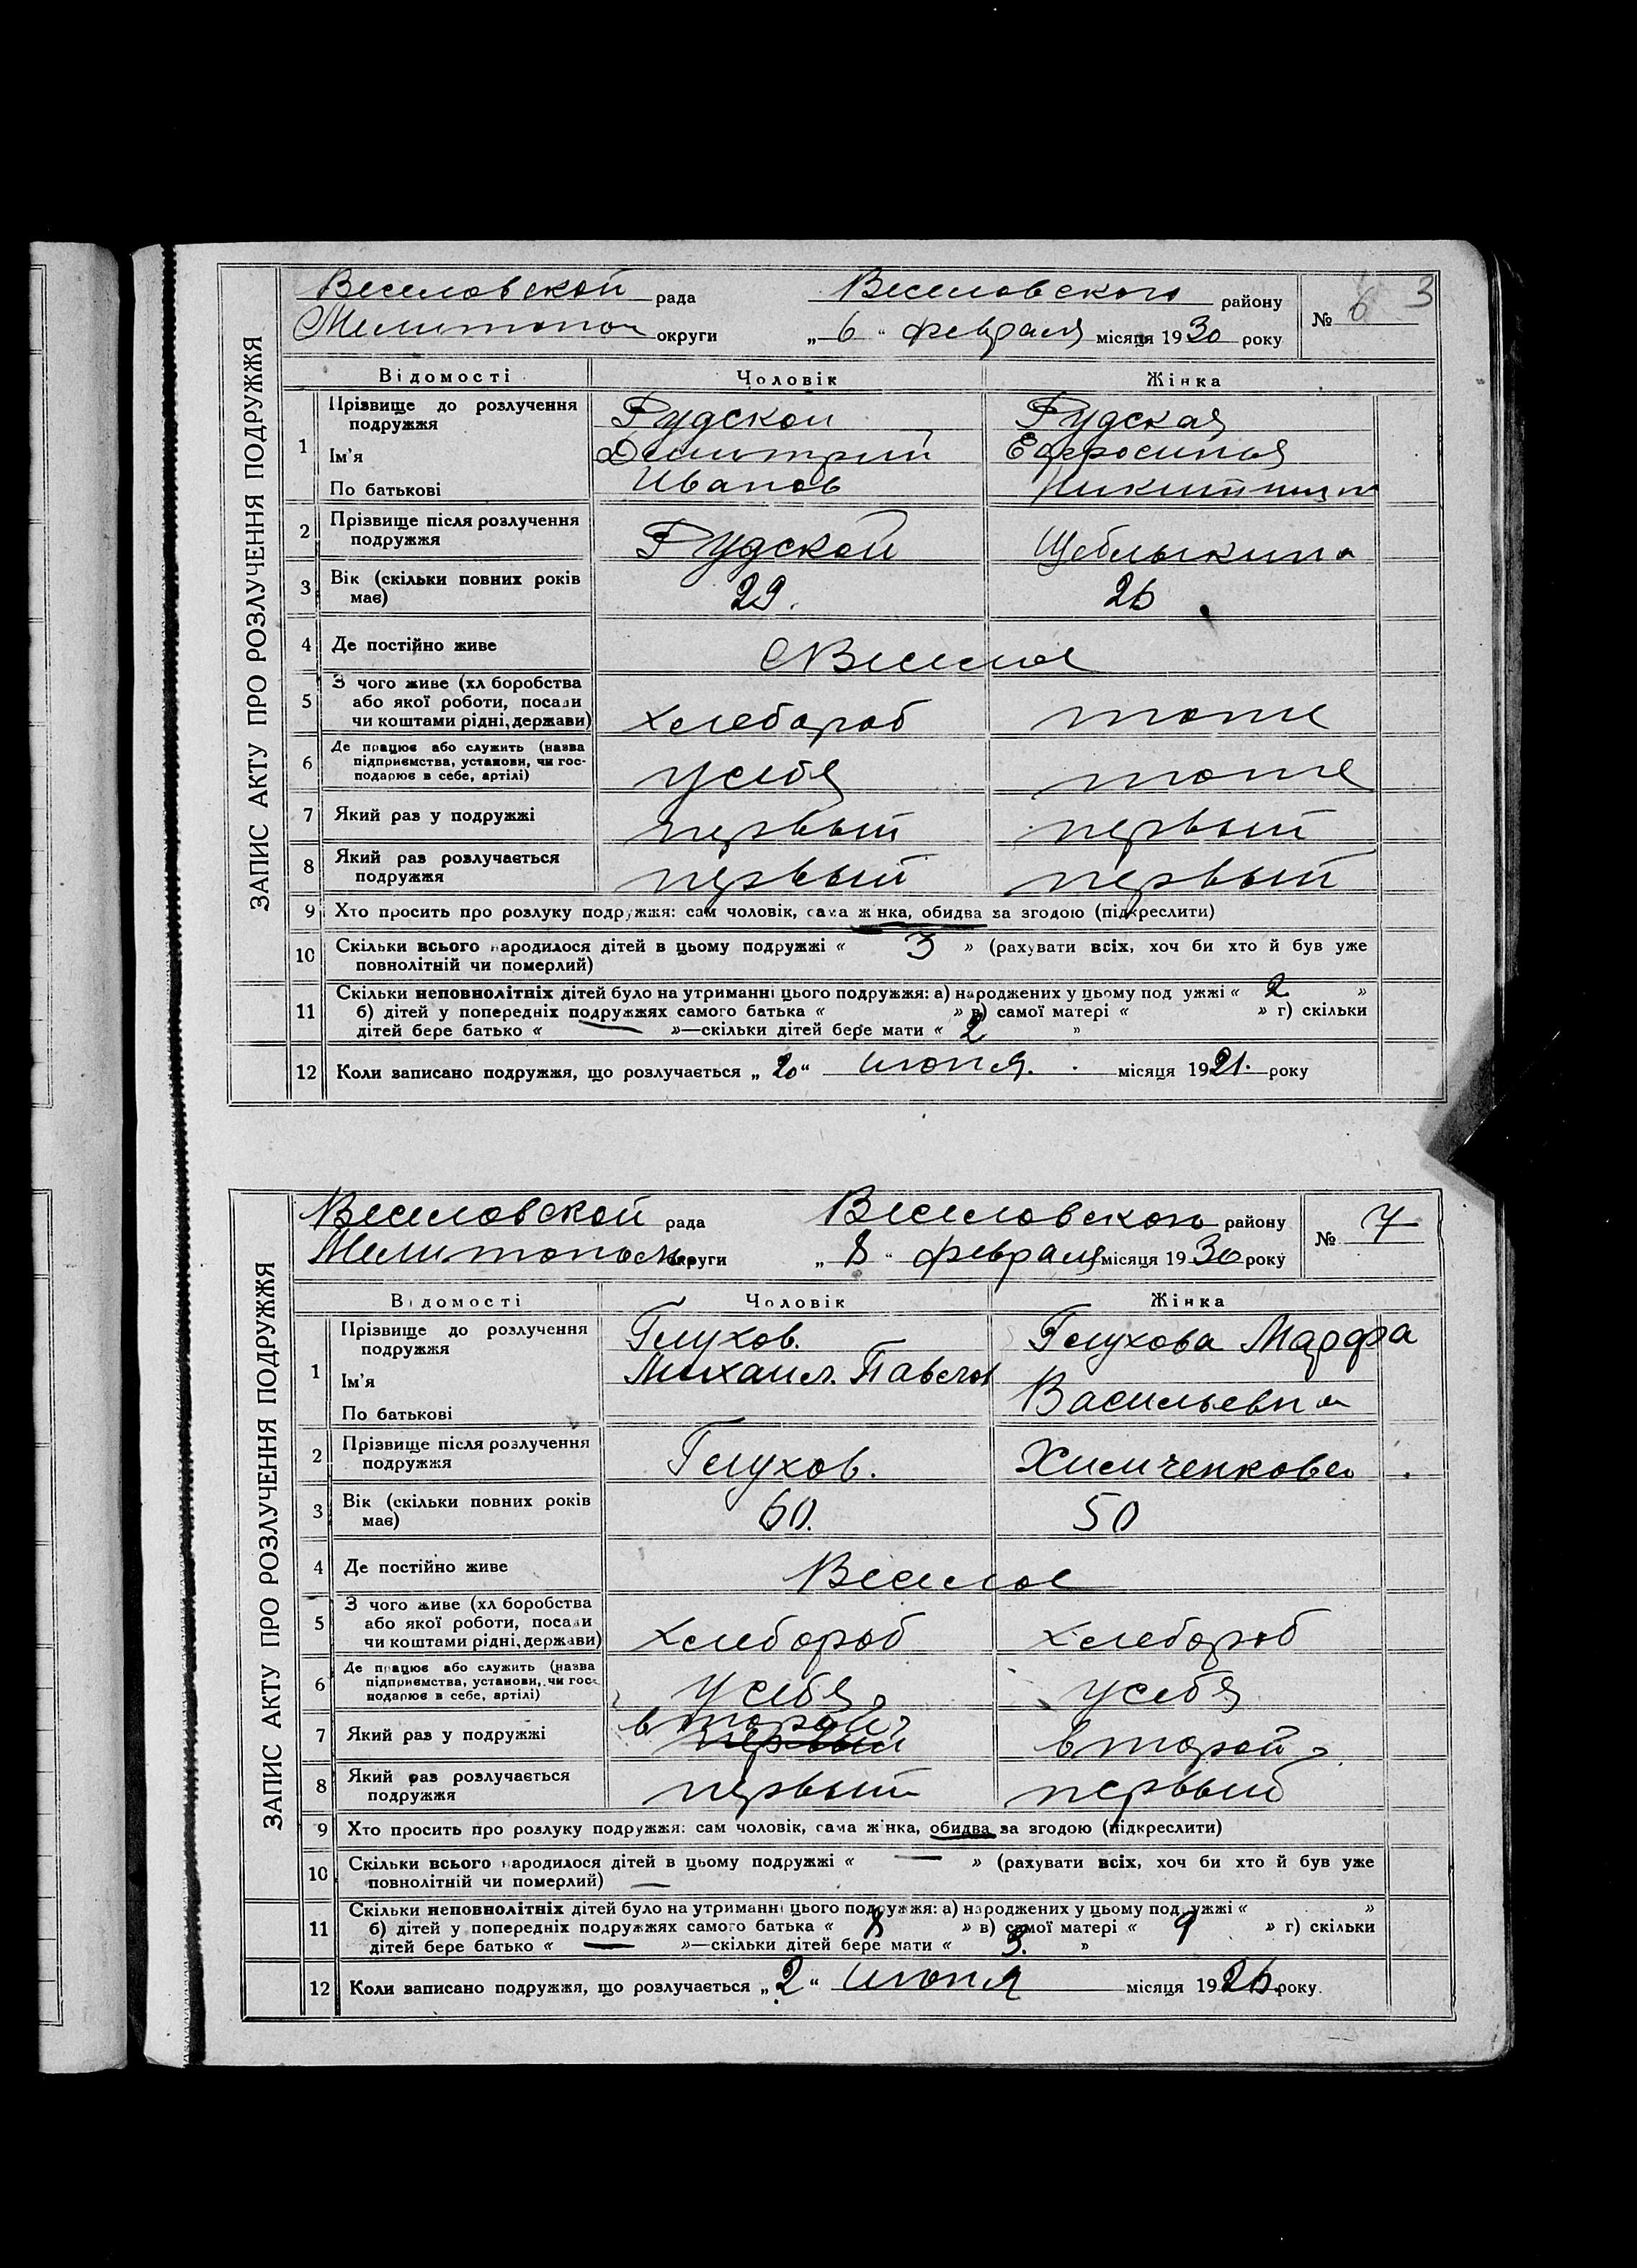 ЗАПИС АКТУ ПРО РОЗЛУЧЕННЯ ПОДРУЖЖЯ
Веселовской рада Веселовского району № 6 3
Мелитопол округи „ 6 “ февраля місяця 1930 року
Відомості Чоловік Жінка
1 Прізвище до розлучення подружжя Рудской Рудская
Ім'я Димитрий Ефросинья
По батькові Иванов Никитична
2 Прізвище після розлучення подружжя Рудской Щеблыкина
3 Вік (скільки повних років має) 29. 26
4 Де постійно живе с Веселое
5 З чого живе (хліборобства або якої роботи, посади чи коштами рідні, держави) хлебороб тоже
6 Де працює або служить (назва підприємства, установи, чи господарює в себе, артілі) у себя тоже
7 Який раз у подружжі первый первый
8 Який раз розлучається подружжя первый первый
9 Хто просить про розлуку подружжя: сам чоловік, сама жінка, обидва за згодою (підкреслити)
10 Скільки всього народилося дітей в цьому подружжі « 3 » (рахувати всіх, хоч би хто й був уже
повнолітній чи померлий)
11 Скільки неповнолітніх дітей було на утриманні цього подружжя: а) народжених у цьому подружжі « 2 »
б) дітей у попередніх подружжях самого батька « » в) самої матері « » г) скільки
дітей бере батько « — »—скільки дітей бере мати « 2 »
12 Коли записано подружжя, що розлучається „ 20 “ июня. місяця 1921. року
ЗАПИС АКТУ ПРО РОЗЛУЧЕННЯ ПОДРУЖЖЯ
Веселовской рада Веселовского району № 7
Мелитопольск. округи „ 8 “ февраля місяця 1930 року
Відомості Чоловік Жінка
1 Прізвище до розлучення подружжя Глухов. Глухова Марфа
Ім'я Михаил. Павлов
По батькові Васильевна
2 Прізвище після розлучення подружжя Глухов. Химченкова
3 Вік (скільки повних років має) 60. 50
4 Де постійно живе Веселое
5 З чого живе (хліборобства або якої роботи, посади чи коштами рідні, держави) хлебороб хлебороб
6 Де працює або служить (назва підприємства, установи, чи господарює в себе, артілі) у себя у себя
7 Який раз у подружжі второй первый второй
8 Який раз розлучається подружжя первый первый
9 Хто просить про розлуку подружжя: сам чоловік, сама жінка, обидва за згодою (підкреслити)
10 Скільки всього народилося дітей в цьому подружжі « — » (рахувати всіх, хоч би хто й був уже
повнолітній чи померлий) —
11 Скільки неповнолітніх дітей було на утриманні цього подружжя: а) народжених у цьому подружжі « »
б) дітей у попередніх подружжях самого батька « 8 » в) самої матері « 9 » г) скільки
дітей бере батько « — »—скільки дітей бере мати « 3. »
12 Коли записано подружжя, що розлучається „ 2 “ июня місяця 1926. року.